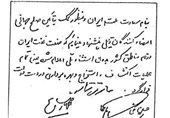 بنام سعادت ملت ایران و بمنظور کمک به تأمین صلح جهانی
امضاء کنندگان ذیل پیشنهاد مینمائیم که صنعت نفت ایران
در تمام مناطق کشور بدون استثناء ملی اعلام شود یعنی تمام
عملیات اکتشاف استخراج و بهره برداری در دست دولت
قرار گیرد